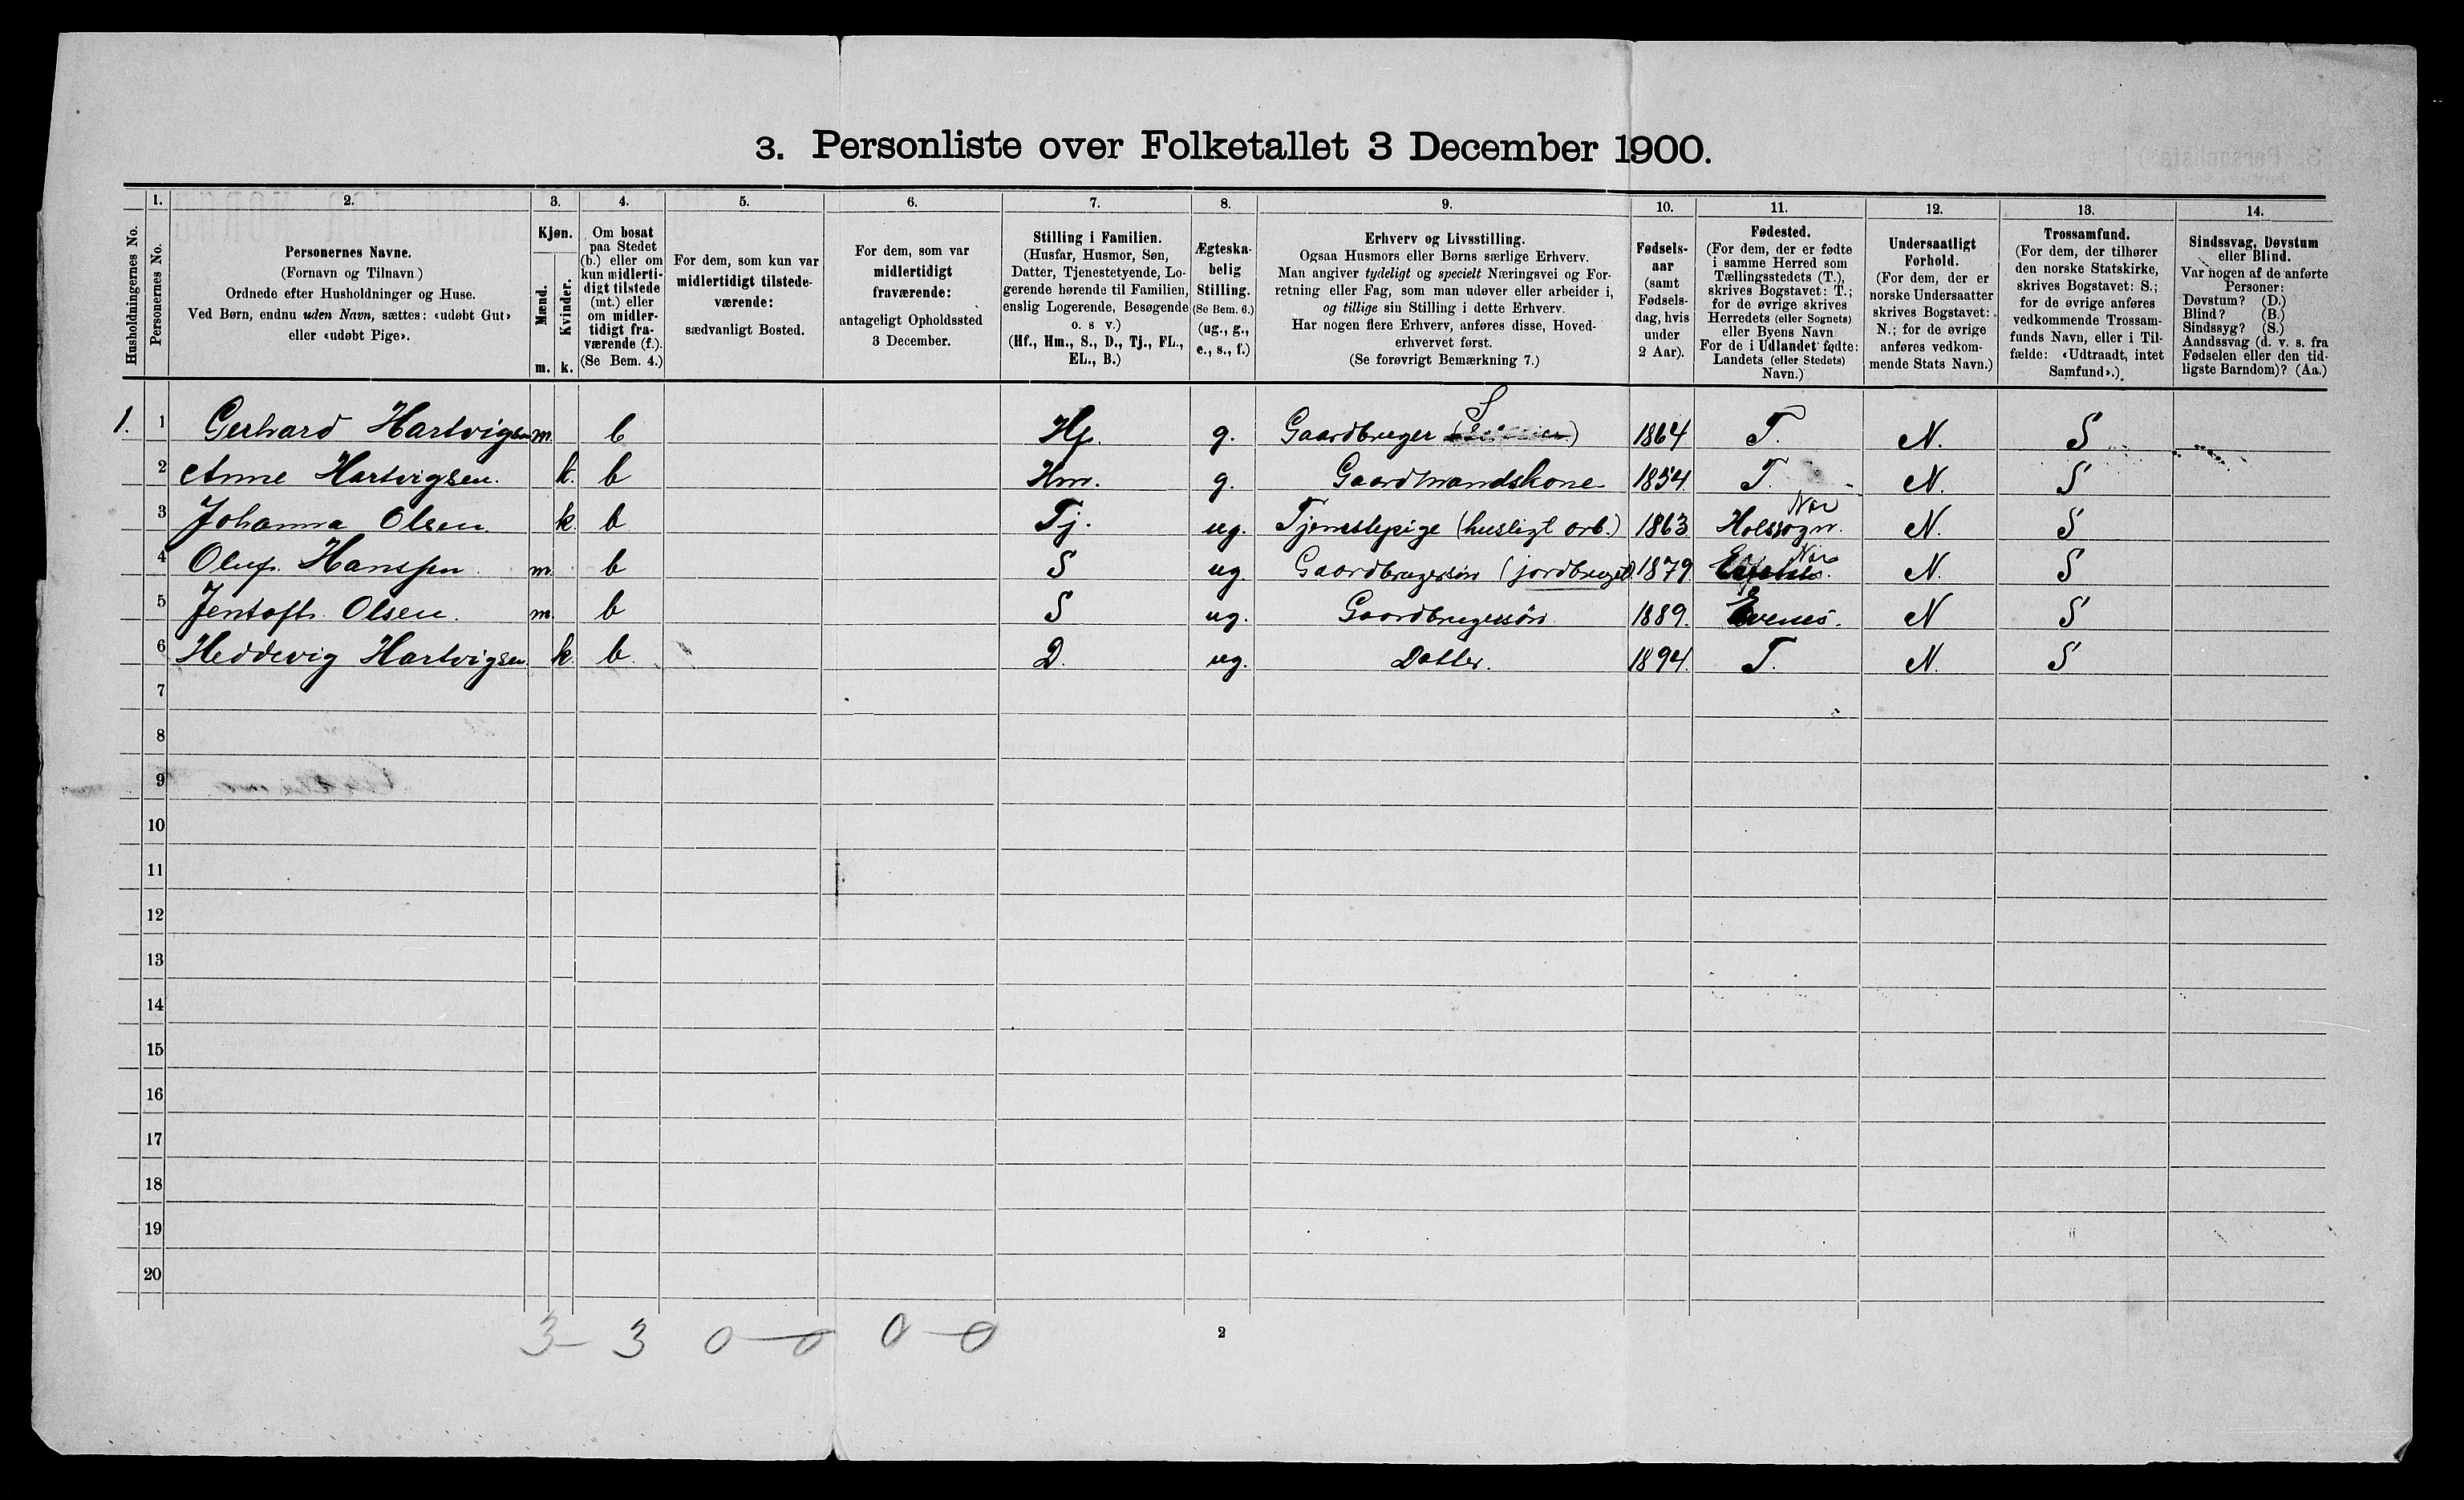 3. Personliste over Folketallet 3 December 1900.
Husholdningernes No.
1. Personernes No.
2. Personernes Navne.
(Fornavn og Tilnavn)
Ordnede efter Husholdninger og Huse.
Ved Børn, endnu uden Navn, sættes: «udøbt Gut»
eller «udøbt Pige».
3. Kjøn.
Mænd. m.
Kvinder. k.
4. Om bosat
paa Stedet
(b.) eller om
kun midlerti-
digt tilstede
(mt.) eller
om midler-
tidigt fra-
værende (f.).
(Se Bem. 4.)
5. For dem, som kun var
midlertidigt tilstede-
værende:
sædvanligt Bosted.
6. For dem, som var
midlertidigt
fraværende:
antageligt Opholdssted
3 December.
7. Stilling i Familien.
(Husfar, Husmor, Søn,
Datter, Tjenestetyende, Lo-
gerende hørende til Familien,
enslig Logerende, Besøgende
o. s v.)
(Hf., Hm., S., D., Tj., FL.,
EL., B.)
8. Ægteska-
belig
Stilling.
(Se Bem. 6.)
(ug., g.,
e., s., f.)
9. Erhverv og Livsstilling.
Ogsaa Husmors eller Børns særlige Erhverv.
Man angiver tydeligt og specielt Næringsvei og For-
retning eller Fag, som man udøver eller arbeider i,
og tillige sin Stilling i dette Erhverv.
Har nogen flere Erhverv, anføres disse, Hoved-
erhvervet først.
(Se forøvrigt Bemærkning 7.)
10. Fødsels-
aar
(samt
Fødsels-
dag, hvis
under
2 Aar).
11. Fødested.
(For dem, der er fødte
i samme Herred som
Tællingsstedets (T.),
skrives Bogstavet: T.;
for de øvrige skrives
Herredets (eller Sognets)
eller Byens Navn
For de i Udlandet fødte:
Landets (eller Stedets)
Navn.)
12. Undersaatligt
Forhold.
(For dem, der er
norske Undersaatter
skrives Bogstavet:
N.; for de øvrige
anføres vedkom-
mende Stats Navn.)
13. Trossamfund.
(For dem, der tilhører
den norske Statskirke,
skrives Bogstavet: S.;
for de øvrige anføres
vedkommende Trossam-
funds Navn, eller i Til-
fælde: «Udtraadt, intet
Samfund».)
14. Sindssvag, Døvstum
eller Blind.
Var nogen af de anførte
Personer:
Døvstum? (D.)
Blind? (B.)
Sindssyg? (S.)
Aandssvag (d. v. s. fra
Fødselen eller den tid-
ligste Barndom)? (Aa.)
S
1. 1 Gerhard Hartvigsen m. b Hf. g. Gaardbruger 1864 T. N. S
2 Anne Hartvigsen. k. b Hm. g. Gaardmandskone 1854. T. N. S
Nor
3 Johanna Olsen k. b Tj. ug. Tjenestepige (husligt arb.) 1863 Holssogn. N. S
Nor
4 Oluf Hanssen m. b S ug. Gaardbrugersøn (jordbruget). 1879. N. S
5 Jentoft Olsen. m. b S ug. Gaardbrugersøn 1889. Evenes. N S
6 Heddevig Hartvigsen k. b. D. ug. Datter. 1894. T. N. S
7
8
9
10
11
12
13
14
15
16
17
18
19
20
3 - 3 0 - 0 0 - 0
2